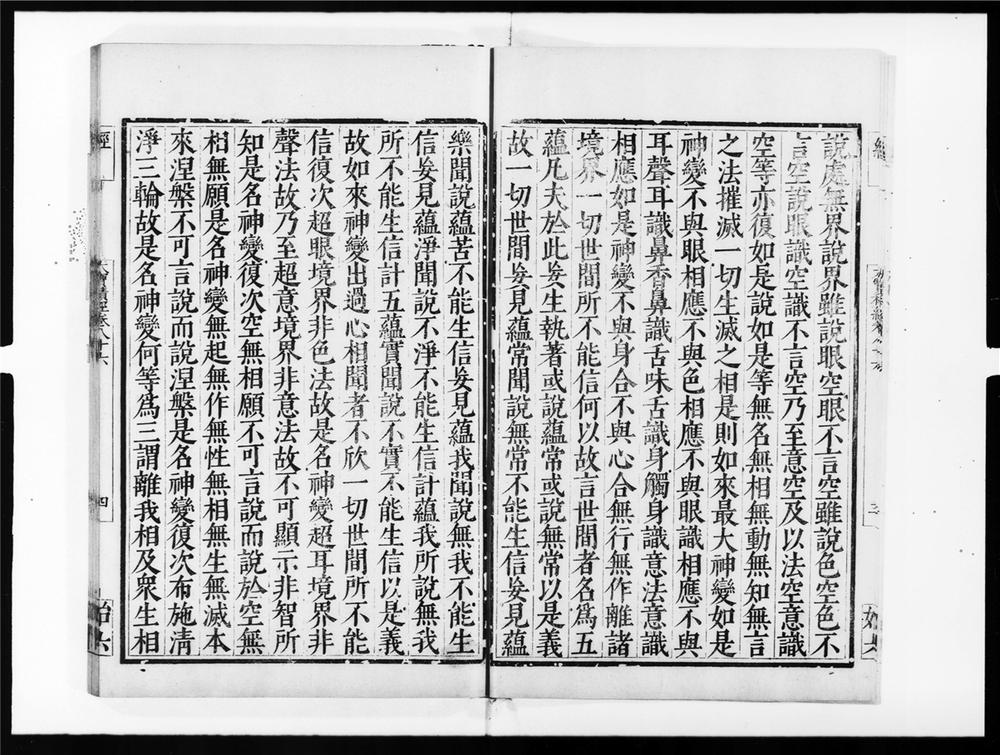 說處無界說界雖說眼空眼不言空雖說色空色不
言空說眼識空識不言空乃至意空及以法空意識
空等亦復如是說如是等無名無相無動無知無言
之法摧滅一切生滅之相是則如來最大神變如是
神變不與眼相應不與色相應不與眼識相應不與
耳聲耳識鼻香鼻識舌味舌識身觸身識意法意識
相應如是神變不與身合不與心合無行無作離諸
境界一切世間所不能信何以故言世間者名為五
蘊凡夫於此妄生執著或說蘊常或說無常以是義
故一切世間妄見蘊常聞說無常不能生信妄見蘊
樂聞說蘊苦不能生信妄見蘊我聞說無我不能生
信妄見蘊淨聞說不淨不能生信計蘊我所說無我
所不能生信計五蘊實聞說不實不能生信以是義
故如來神變出過心相聞者不欣一切世間所不能
信復次超眼境界非色法故是名神變超耳境界非
聲法故乃至超意境界非意法故不可顯示非智所
知是名神變復次空無相願不可言說而說於空無
相無願是名神變無起無作無性無相無生無滅本
來涅槃不可言說而說涅槃是名神變復次布施清
淨三輪故是名神變何等為三謂離我相及眾生相
經
四